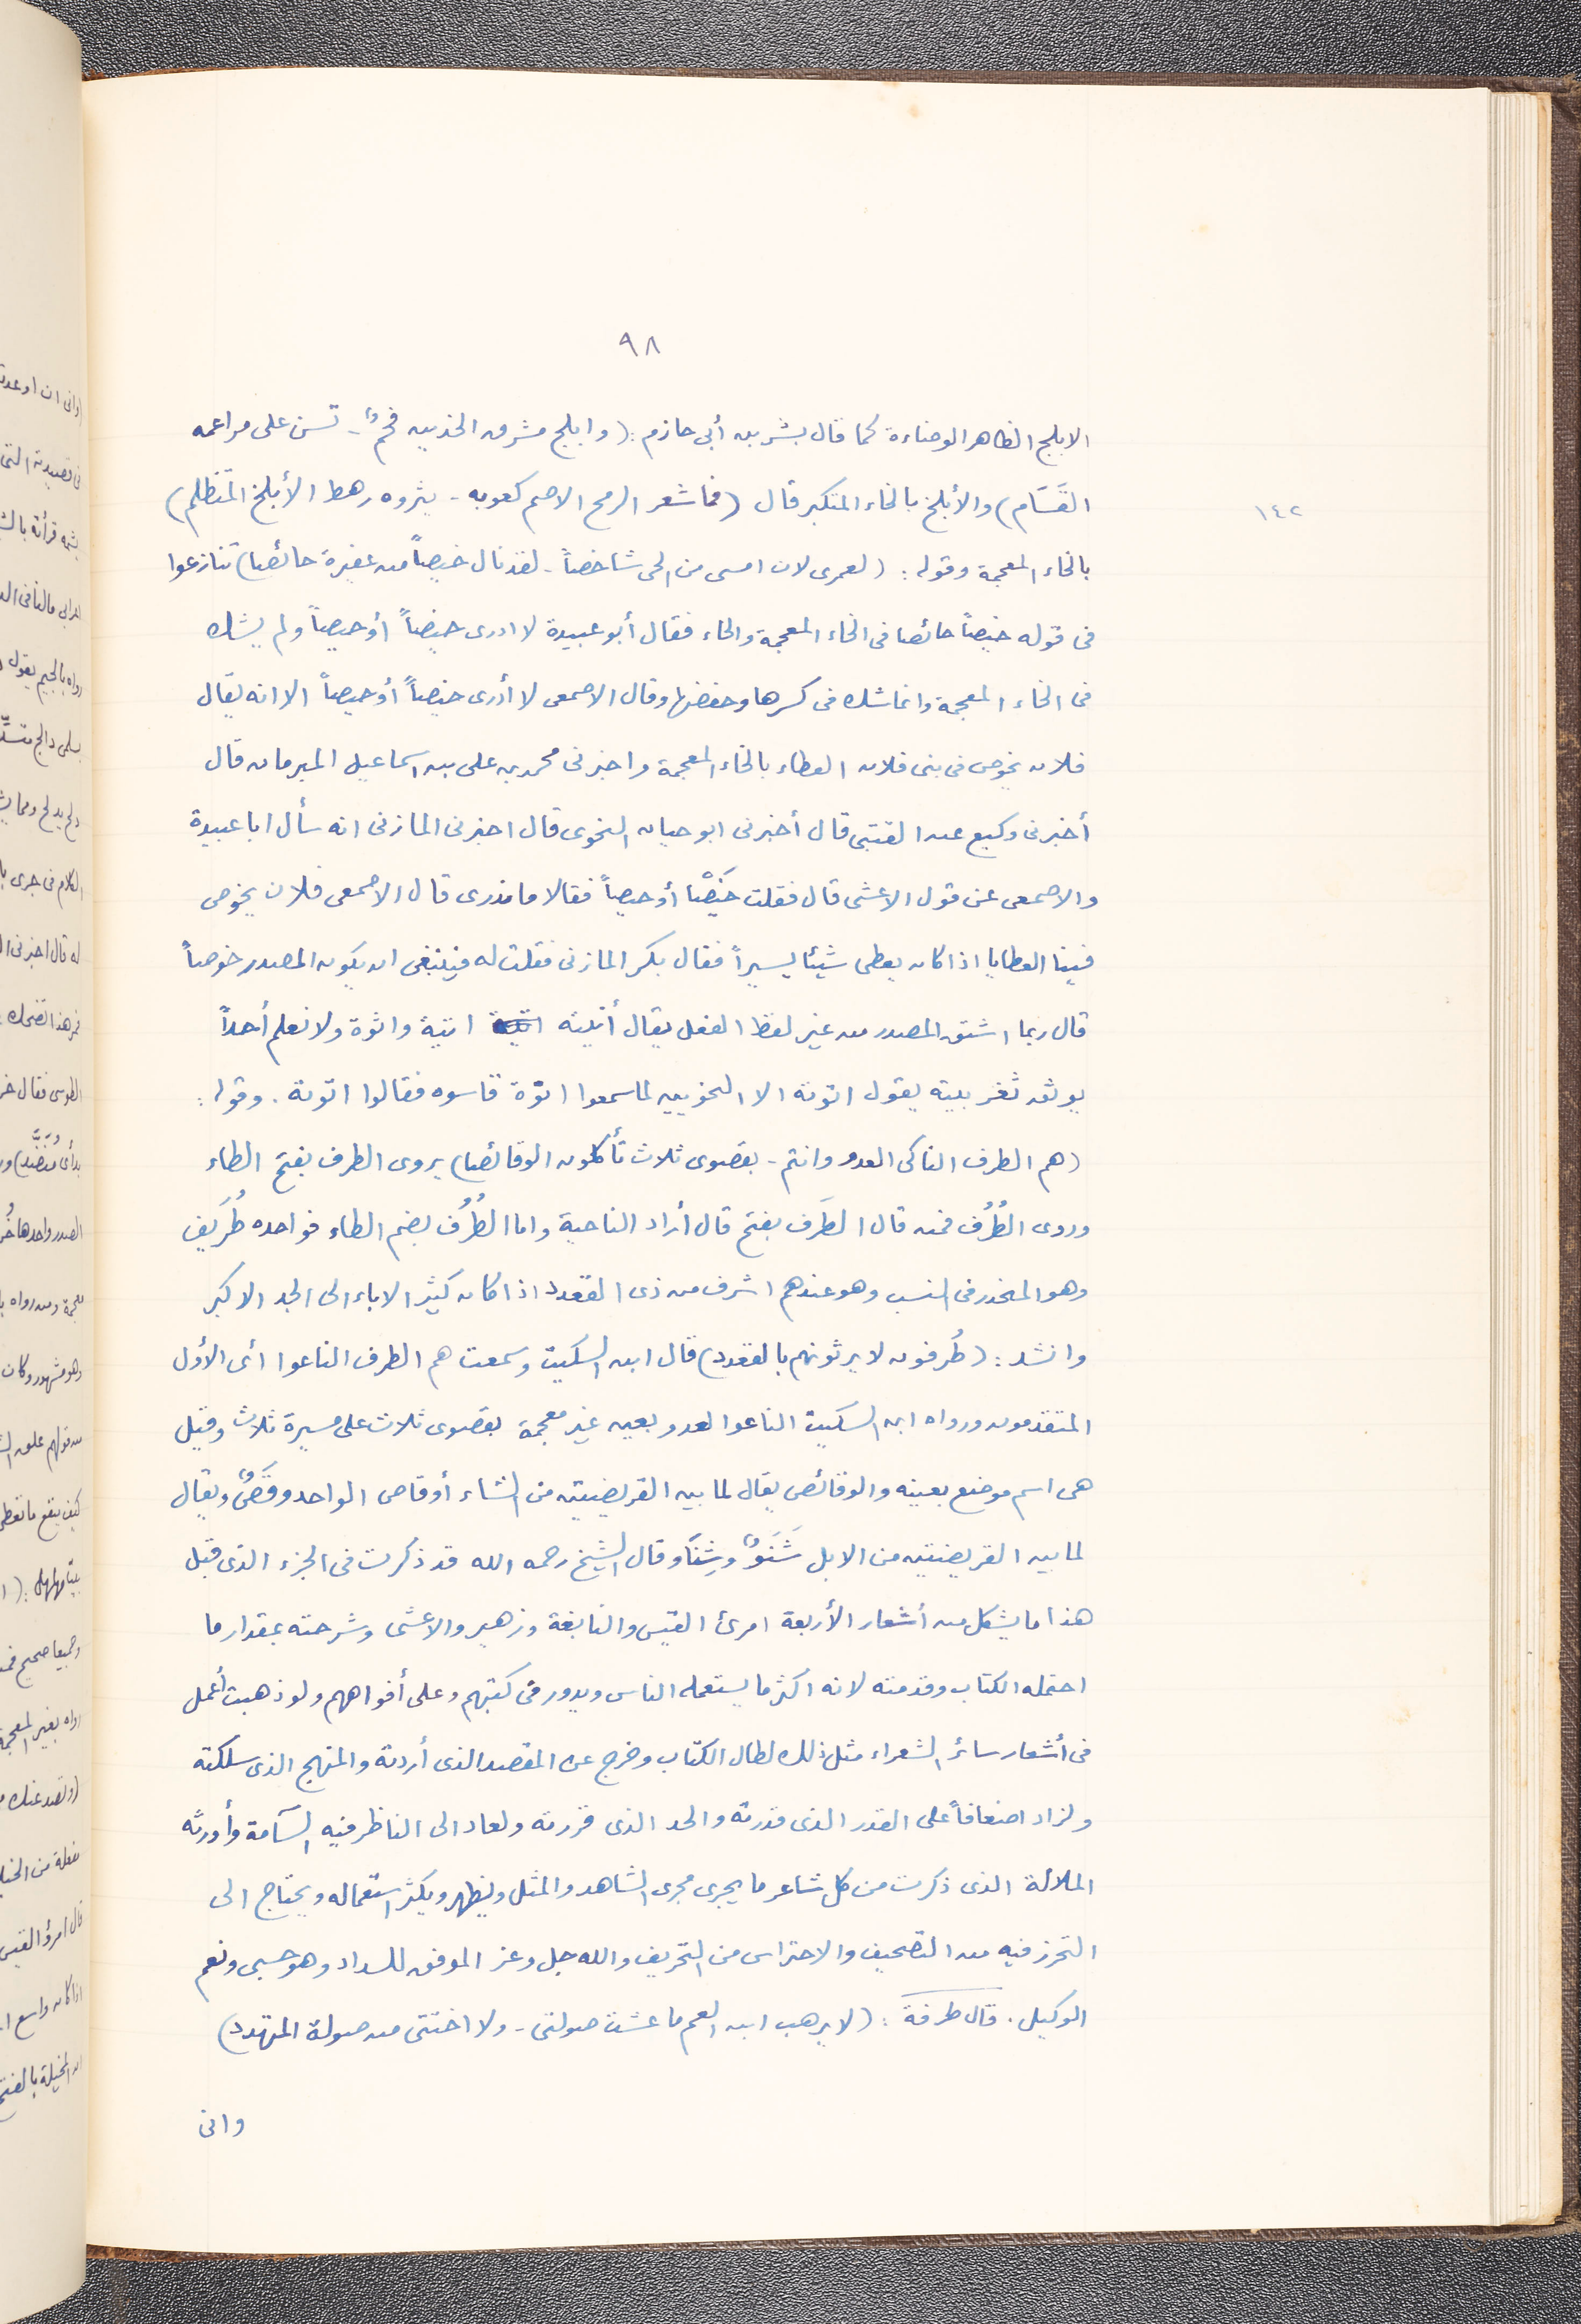 ٩٨
الابلج الظاهر الوضاءة كما قال بشر بن أبى حازم : ( وابلج مشرق الخدين فخمٌ - تسن على مراغمه
القَسَام ) والأبلخ بالخاء المتكبر قال ( فما شعر الرمح الاصم كعوبه - بثروه رهط الأبلخ المتظلم )
١٤٢
بالخاء المعجمة وقوله : ( لعمرى لان امسى من الحى شاخصاً - لقد نال خيصاً من عفيرة حائصا ) تنازعوا
فى قوله خيصاً حائصا فى الخاء المعجمة والحاء فقال أبو عبيدة لا ادرى خيصاً أو حيصاً ولم يشك
فى الخاء المعجمة وانما شك فى كسرها وخفضها وقال الاصمعى لا أدرى خيصاً أو حيصاً الا انه يقال
فلان يخوص فى بنى فلان العطاء بالخاء المعجمة واخبرنى محمد بن على بن اسماعيل المبرمان قال
أخبرنى وكيع عن القتبى قال أخبرنى ابو حيان النحوى قال اخبرنى المازنى انه سأل ابا عبيدة
والاصمعى عن قول الاعشى قال فقلت خَيْصًا أو حيصاً فقالا ما ندرى قال الاصمعى فلان يخوص
فينا العطايا اذا كان يعطى شيئا يسيراً فقال بكر المازنى فقلت له فينبغى ان يكون المصدر خوصاً
قال ربما اشتق المصدر من غير لفظ الفعل يقال أتيته اتية واتوة ولا نعلم أحداً
يوثق بعربيته يقول اتوته الا النحويين لما سمعوا اتوة قاسوه فقالوا اتوته . وقوله :
( هم الطرف الناكى العدو وانتم - بقصوى ثلاث تأكلون الوقائصا ) يروى الطرف بفتح الطاء
وروى الطُرُف فمن قال الطَرَف بفتح قال أراد الناحية واما الطُرُف بضم الطاء فواحده طُرَيف
وهو المنحدر فى النسب وهو عندهم اشرف من ذى القعدد اذا كان كثير الاباء الى الجد الاكبر
وانشد : ( طُرفون لا يرثونهم بالقعدد ) قال ابن السكيت وسمعت هم الطرف الناعوا أى الأول
المتقدمون ورواه ابن السكيت الناعوا العدو بعين غير معجمة بقصوى ثلاث على مسيرة ثلاث وقيل
هى اسم موضع بعينه والوقائص يقال لما بين الفريضيتين من الشاء أوقاص الواحد وقَصٌ ويقال
لما بين الفريضيتين من الابل شَنَوٌ وشِنَا وقال الشيخ رحمه الله قد ذكرت فى الجزء الذى قبل
هذا ما يشكل من أشعار الأربعة امرئ القيس والنابغة وزهير والاعشى وشرحته بمقدار ما
احتمله الكتاب وقدمته لانه اكثر ما يستعمله الناس ويدور فى كتبهم وعلى أفواههم ولو ذهبت أعمل
فى أشعار سائر الشعراء مثل ذلك لطال الكتاب وخرج عن المقصد الذى أردته والمنهج الذى سلكته
ولزاد اضعافاً على القدر الذى قدرته والحد الذى قررته ولعاد الى الناظر فيه السآمة وأورثه
الملالة الذى ذكرت من كل شاعر ما يجرى مجرى الشاهد والمثل ويظهر ويكثر استعماله ويحتاج الى
التحرز فيه من التصحيف والاحتراس من التحريف والله جل وعز الموفق للسداد وهو حسبى ونعم
الوكيل . قال طرفة : ( لا يرهب ابن العم ما عشت صولتى - ولا اختتى من صولة المتهدد )
وانى